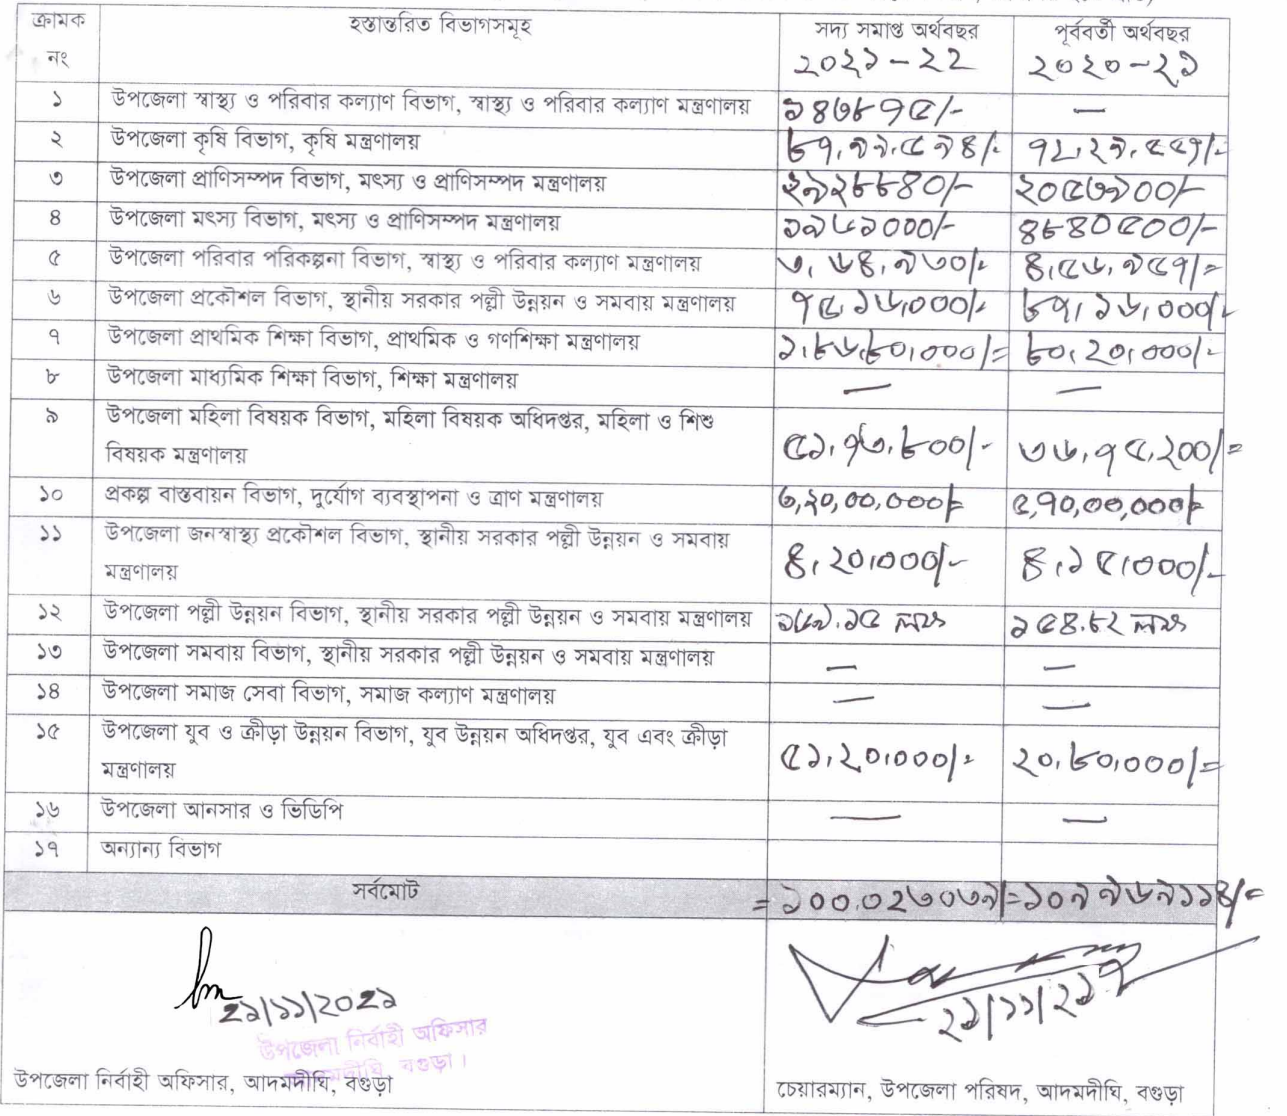 ক্রামক নং	হস্তান্তরিত বিভাগসমূহ	সদ্য সমাপ্ত অর্থবছর ২০২১-২২	পূর্ববর্তী অর্থবছর ২০২০-২১
১	উপজেলা স্বাস্থ্য ও পরিবার কল্যাণ বিভাগ, স্বাস্থ্য ও পরিবার কল্যাণ মন্ত্রণালয়	—
২	উপজেলা কৃষি বিভাগ, কৃষি মন্ত্রণালয়
৩	উপজেলা প্রাণিসম্পদ বিভাগ, মৎস্য ও প্রাণিসম্পদ মন্ত্রণালয়
৪	উপজেলা মৎস্য বিভাগ, মৎস্য ও প্রাণিসম্পদ মন্ত্রণালয়	৪৮৪০৫০০/-
৫	উপজেলা পরিবার পরিকল্পনা বিভাগ, স্বাস্থ্য ও পরিবার কল্যাণ মন্ত্রণালয়	৩,৬৪,৯৩০/-	৪,৫৬,৯৫৭/=
৬	উপজেলা প্রকৌশল বিভাগ, স্থানীয় সরকার পল্লী উন্নয়ন ও সমবায় মন্ত্রণালয়	৭৫,১৬,০০০/-	৮৭,১৬,০০০/-
৭	উপজেলা প্রাথমিক শিক্ষা বিভাগ, প্রাথমিক ও গণশিক্ষা মন্ত্রণালয়	১,৮৬,৮০,০০০/=	৮০,২০,০০০/-
৮	উপজেলা মাধ্যমিক শিক্ষা বিভাগ, শিক্ষা মন্ত্রণালয়	—	—
৯	উপজেলা মহিলা বিষয়ক বিভাগ, মহিলা বিষয়ক অধিদপ্তর, মহিলা ও শিশু
বিষয়ক মন্ত্রণালয়	৫১,৭৩,৮০০/-	৩৬,৭৫,২০০/=
১০	প্রকল্প বাস্তবায়ন বিভাগ, দুর্যোগ ব্যবস্থাপনা ও ত্রাণ মন্ত্রণালয়	৫,৭০,০০,০০০/-
১১	উপজেলা জনস্বাস্থ্য প্রকৌশল বিভাগ, স্থানীয় সরকার পল্লী উন্নয়ন ও সমবায়
মন্ত্রণালয়	৪,২০,০০০/-	৪,১৫,০০০/-
১২	উপজেলা পল্লী উন্নয়ন বিভাগ, স্থানীয় সরকার পল্লী উন্নয়ন ও সমবায় মন্ত্রণালয়	১৫৪.৮২ লক্ষ
১৩	উপজেলা সমবায় বিভাগ, স্থানীয় সরকার পল্লী উন্নয়ন ও সমবায় মন্ত্রণালয়	—	—
১৪	উপজেলা সমাজ সেবা বিভাগ, সমাজ কল্যাণ মন্ত্রণালয়	—	—
১৫	উপজেলা যুব ও ক্রীড়া উন্নয়ন বিভাগ, যুব উন্নয়ন অধিদপ্তর, যুব এবং ক্রীড়া
মন্ত্রণালয়	৫১,২০,০০০/-	২০,৮০,০০০/=
১৬	উপজেলা আনসার ও ভিডিপি	—	—
১৭	অন্যান্য বিভাগ
সর্বমোট
উপজেলা নির্বাহী অফিসার
আদমদীঘি, বগুড়া।
উপজেলা নির্বাহী অফিসার, আদমদীঘি, বগুড়া	চেয়ারম্যান, উপজেলা পরিষদ, আদমদীঘি, বগুড়া